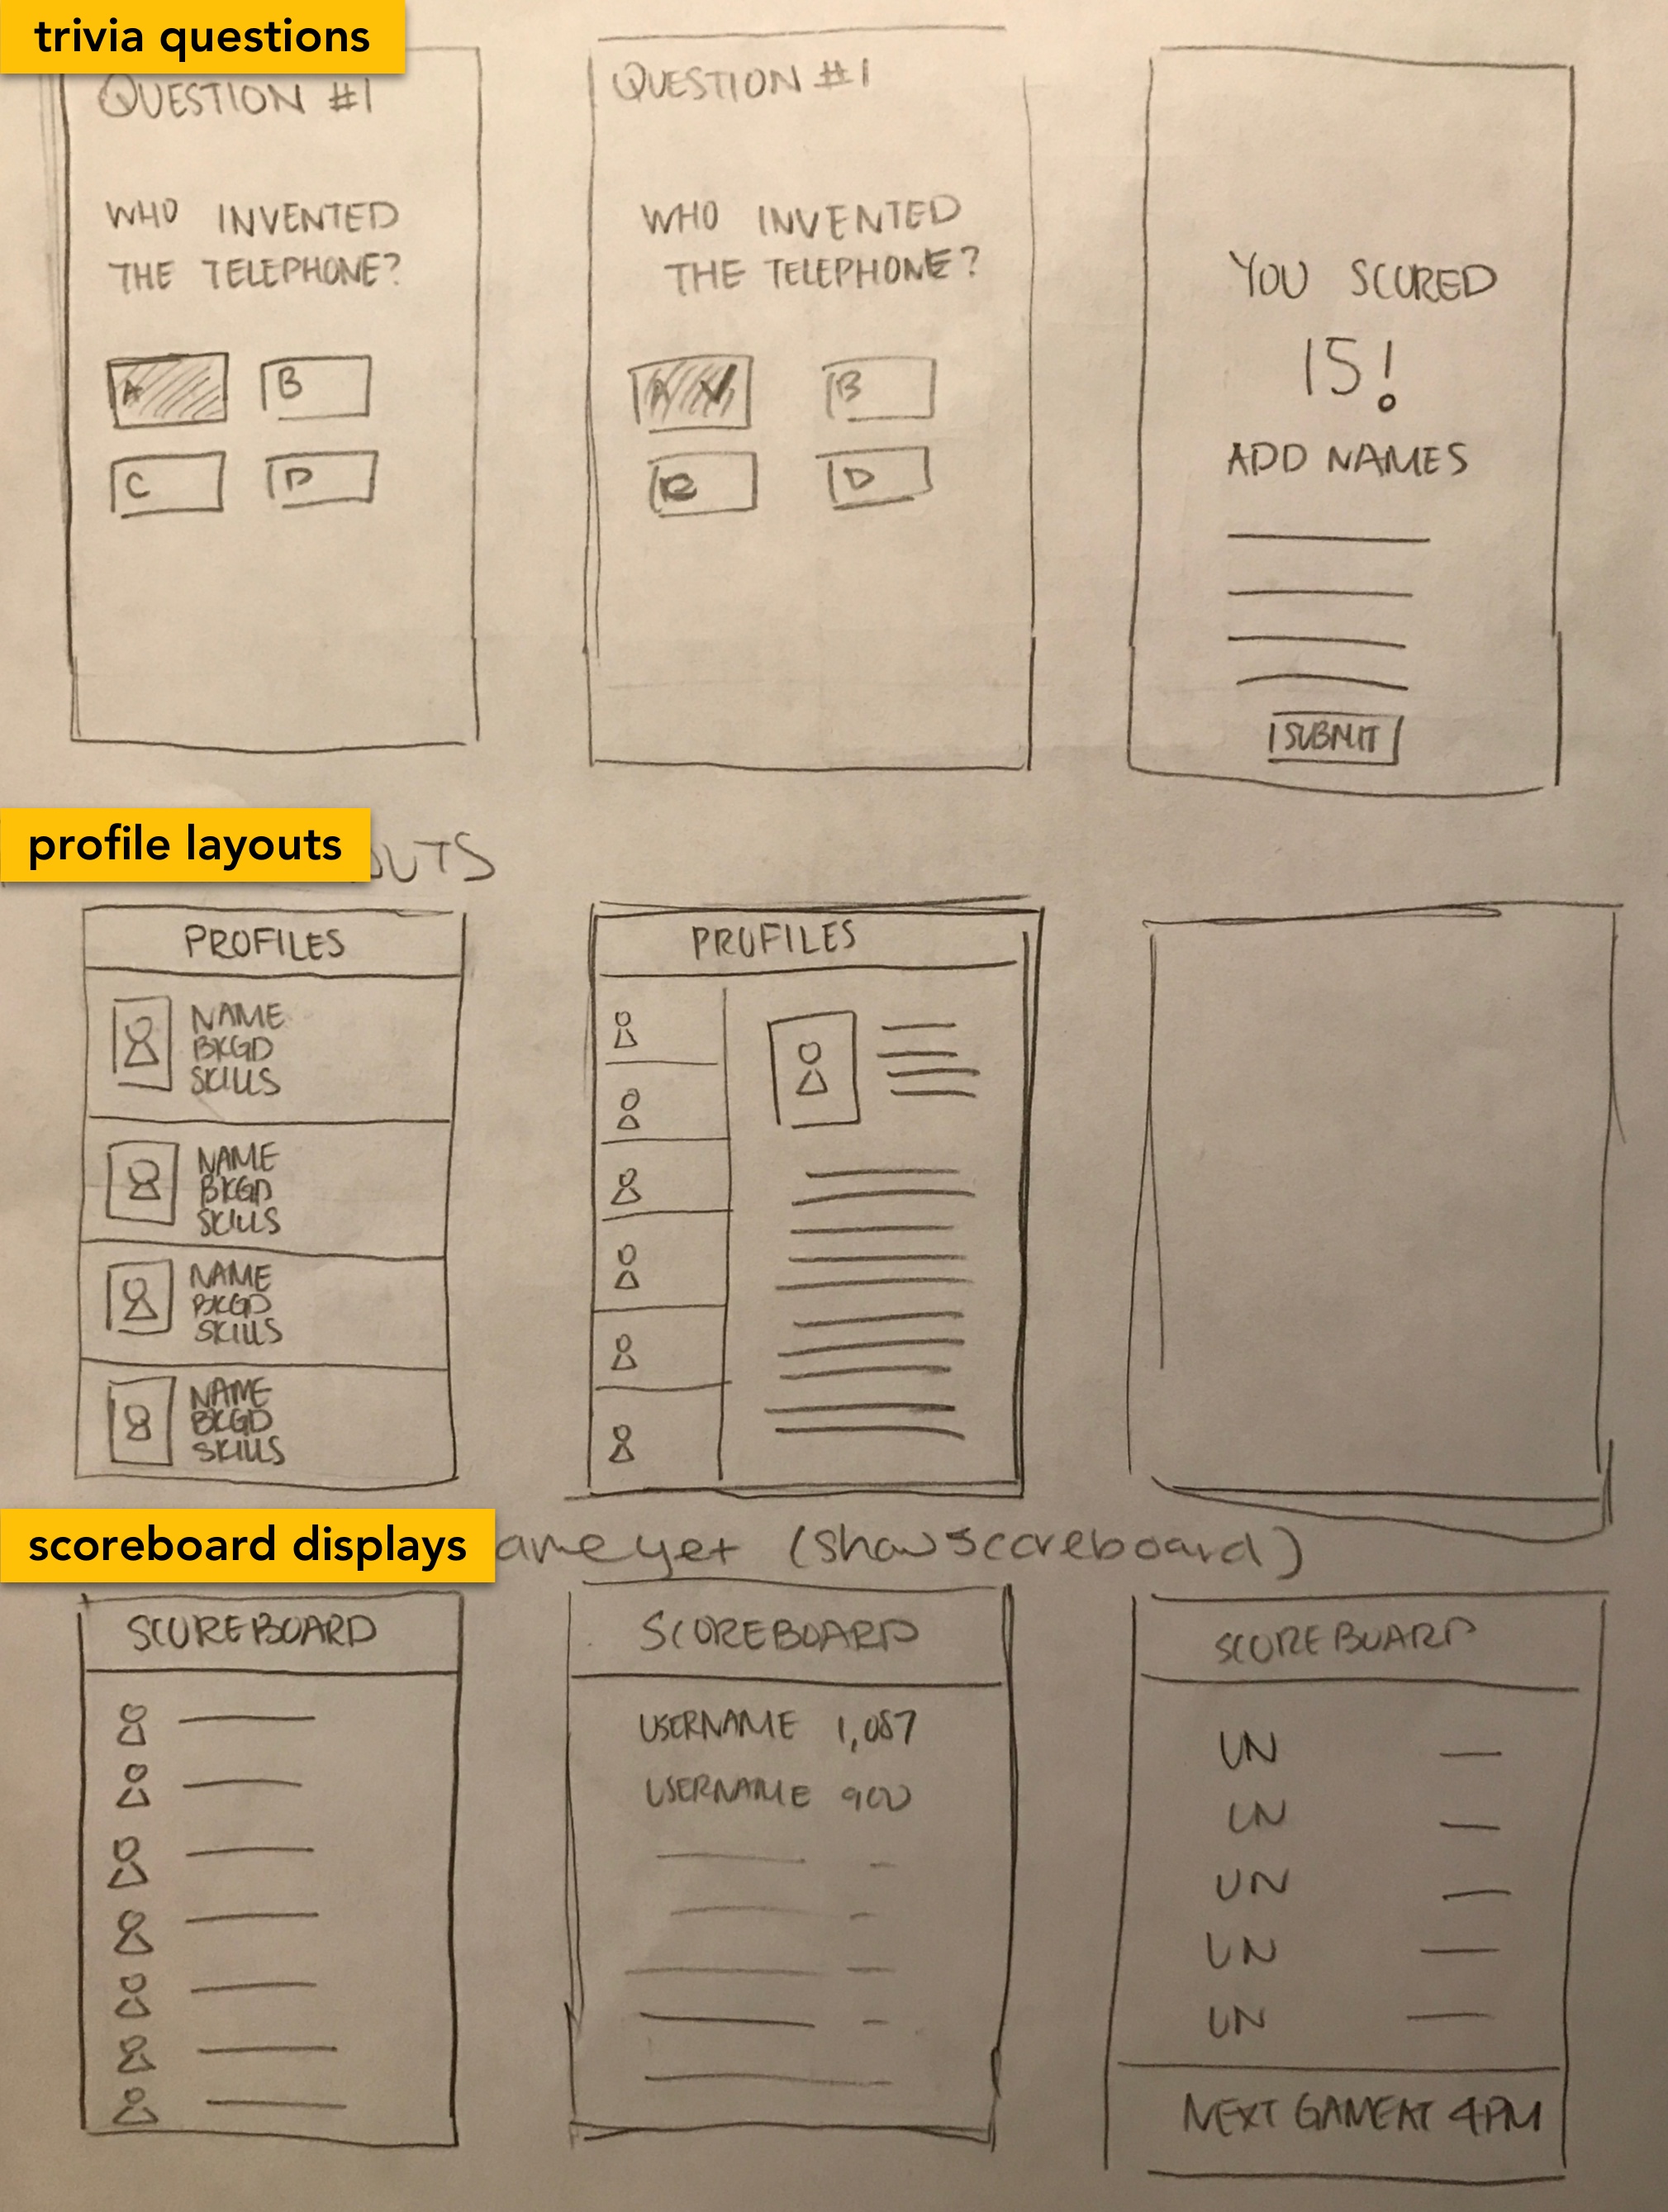 trivia questions
QUESTION #1
WHO INVENTED
THE TELEPHONE?
A
B
C
D
QUESTION #1
WHO INVENTED
THE TELEPHONE?
B
D
YOU SCORED
15!
ADD NAMES
SUBMIT
profile layouts
OUTS
PROFILES
NAME
BKGD
SKILLS
NAME
BKGD
SKILLS
NAME
BKGD
SKILLS
NAME
BKGD
SKILLS
PROFILES
scoreboard displays
ame yet (show scoreboard)
SCOREBOARD
SCOREBOARD
USERNAME 1,087
USERNAME 900
SCOREBOARD
UN
UN
UN
UN
UN
NEXT GAME AT 4PM